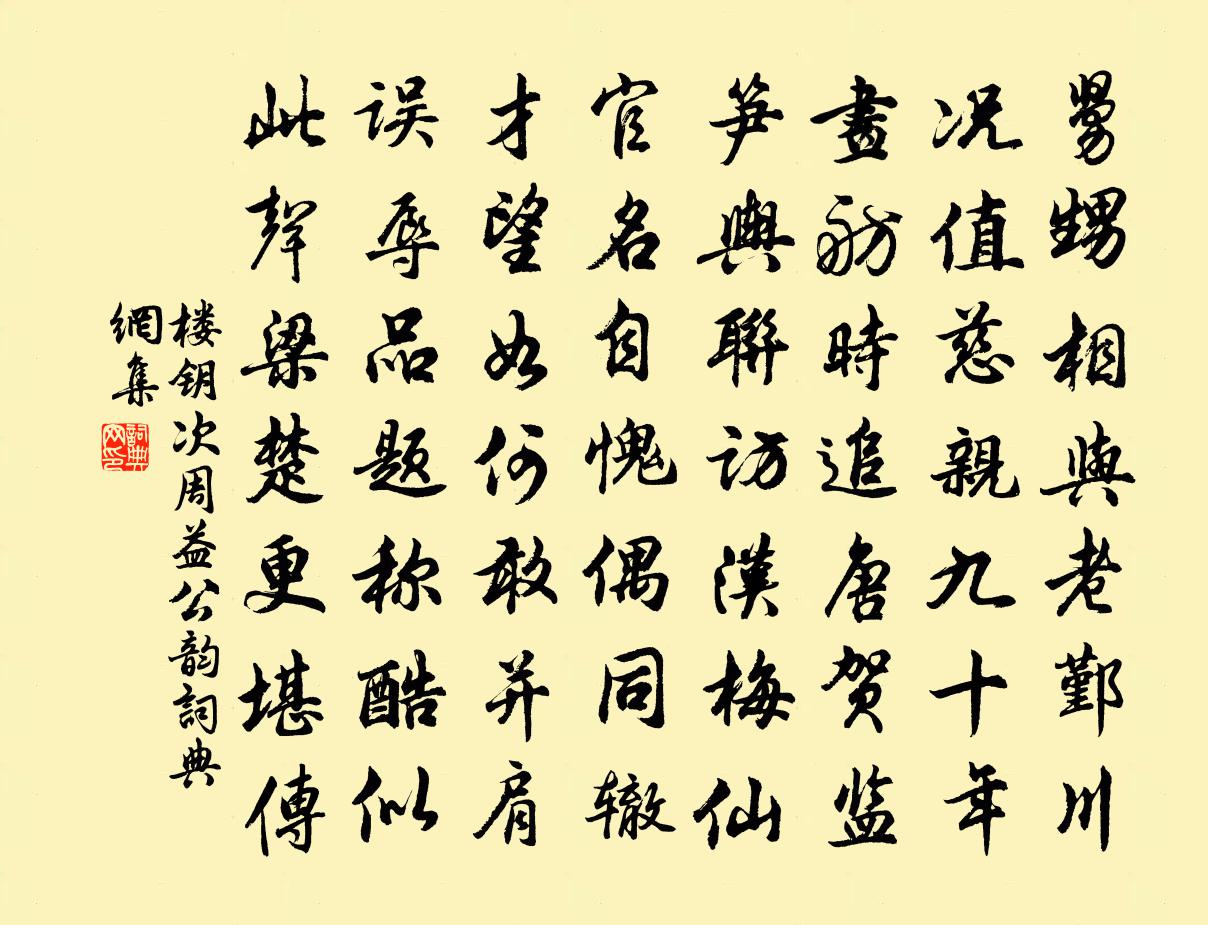 舅甥相與老鄞川
况值慈親九十年
畫舫時追唐贺监
笋輿聯訪漢梅仙
官名自愧偶同辙
才望如何敢并肩
误辱品题称酷似
此聲梁楚更堪傳
楼钥次周益公韵詞典
網集
詞典網印